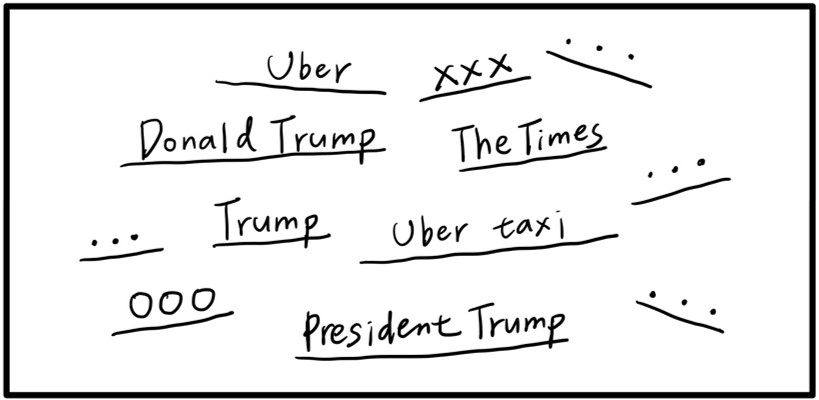 Uber xxx ...
Donald Trump The Times
...
... Trump Uber taxi
OOO President Trump ...